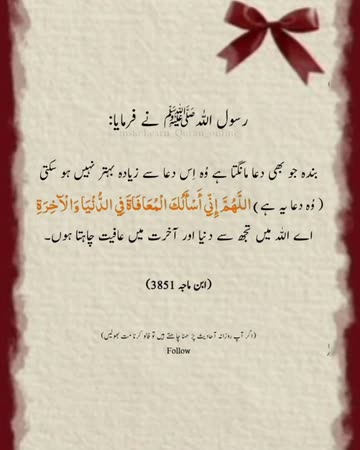 رسول اللہ ﷺ نے فرمایا:
بندہ جو بھی دعا مانگتا ہے وُہ اِس دعا سے زیادہ بہتر نہیں ہو سکتی
(وُہ دعا یہ ہے) اللَّهُمَّ إِنِّي أَسْأَلُكَ الْمُعَافَاةَ فِي الدُّنْيَا وَالْآخِرَةِ
اے اللہ میں تجھ سے دنیا اور آخرت میں عافیت چاہتا ہوں۔
(ابن ماجہ 3851)
(اگر آپ روزانہ آحادیث پڑھنا چاہتے ہیں تو فالو کرنا مت بھولیں)
Follow